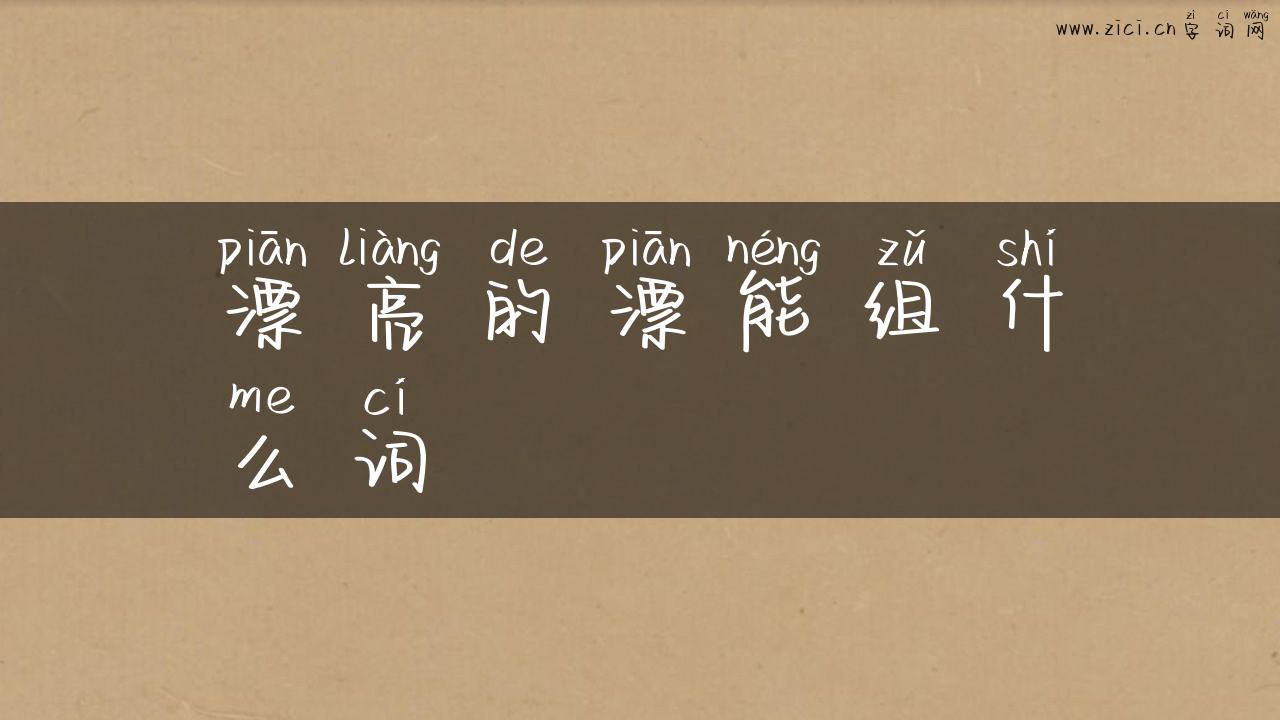 zì cí wǎng
www.zici.cn 字词网
piān liàng de piān néng zǔ shí
漂亮的漂能组什
me cí
么词